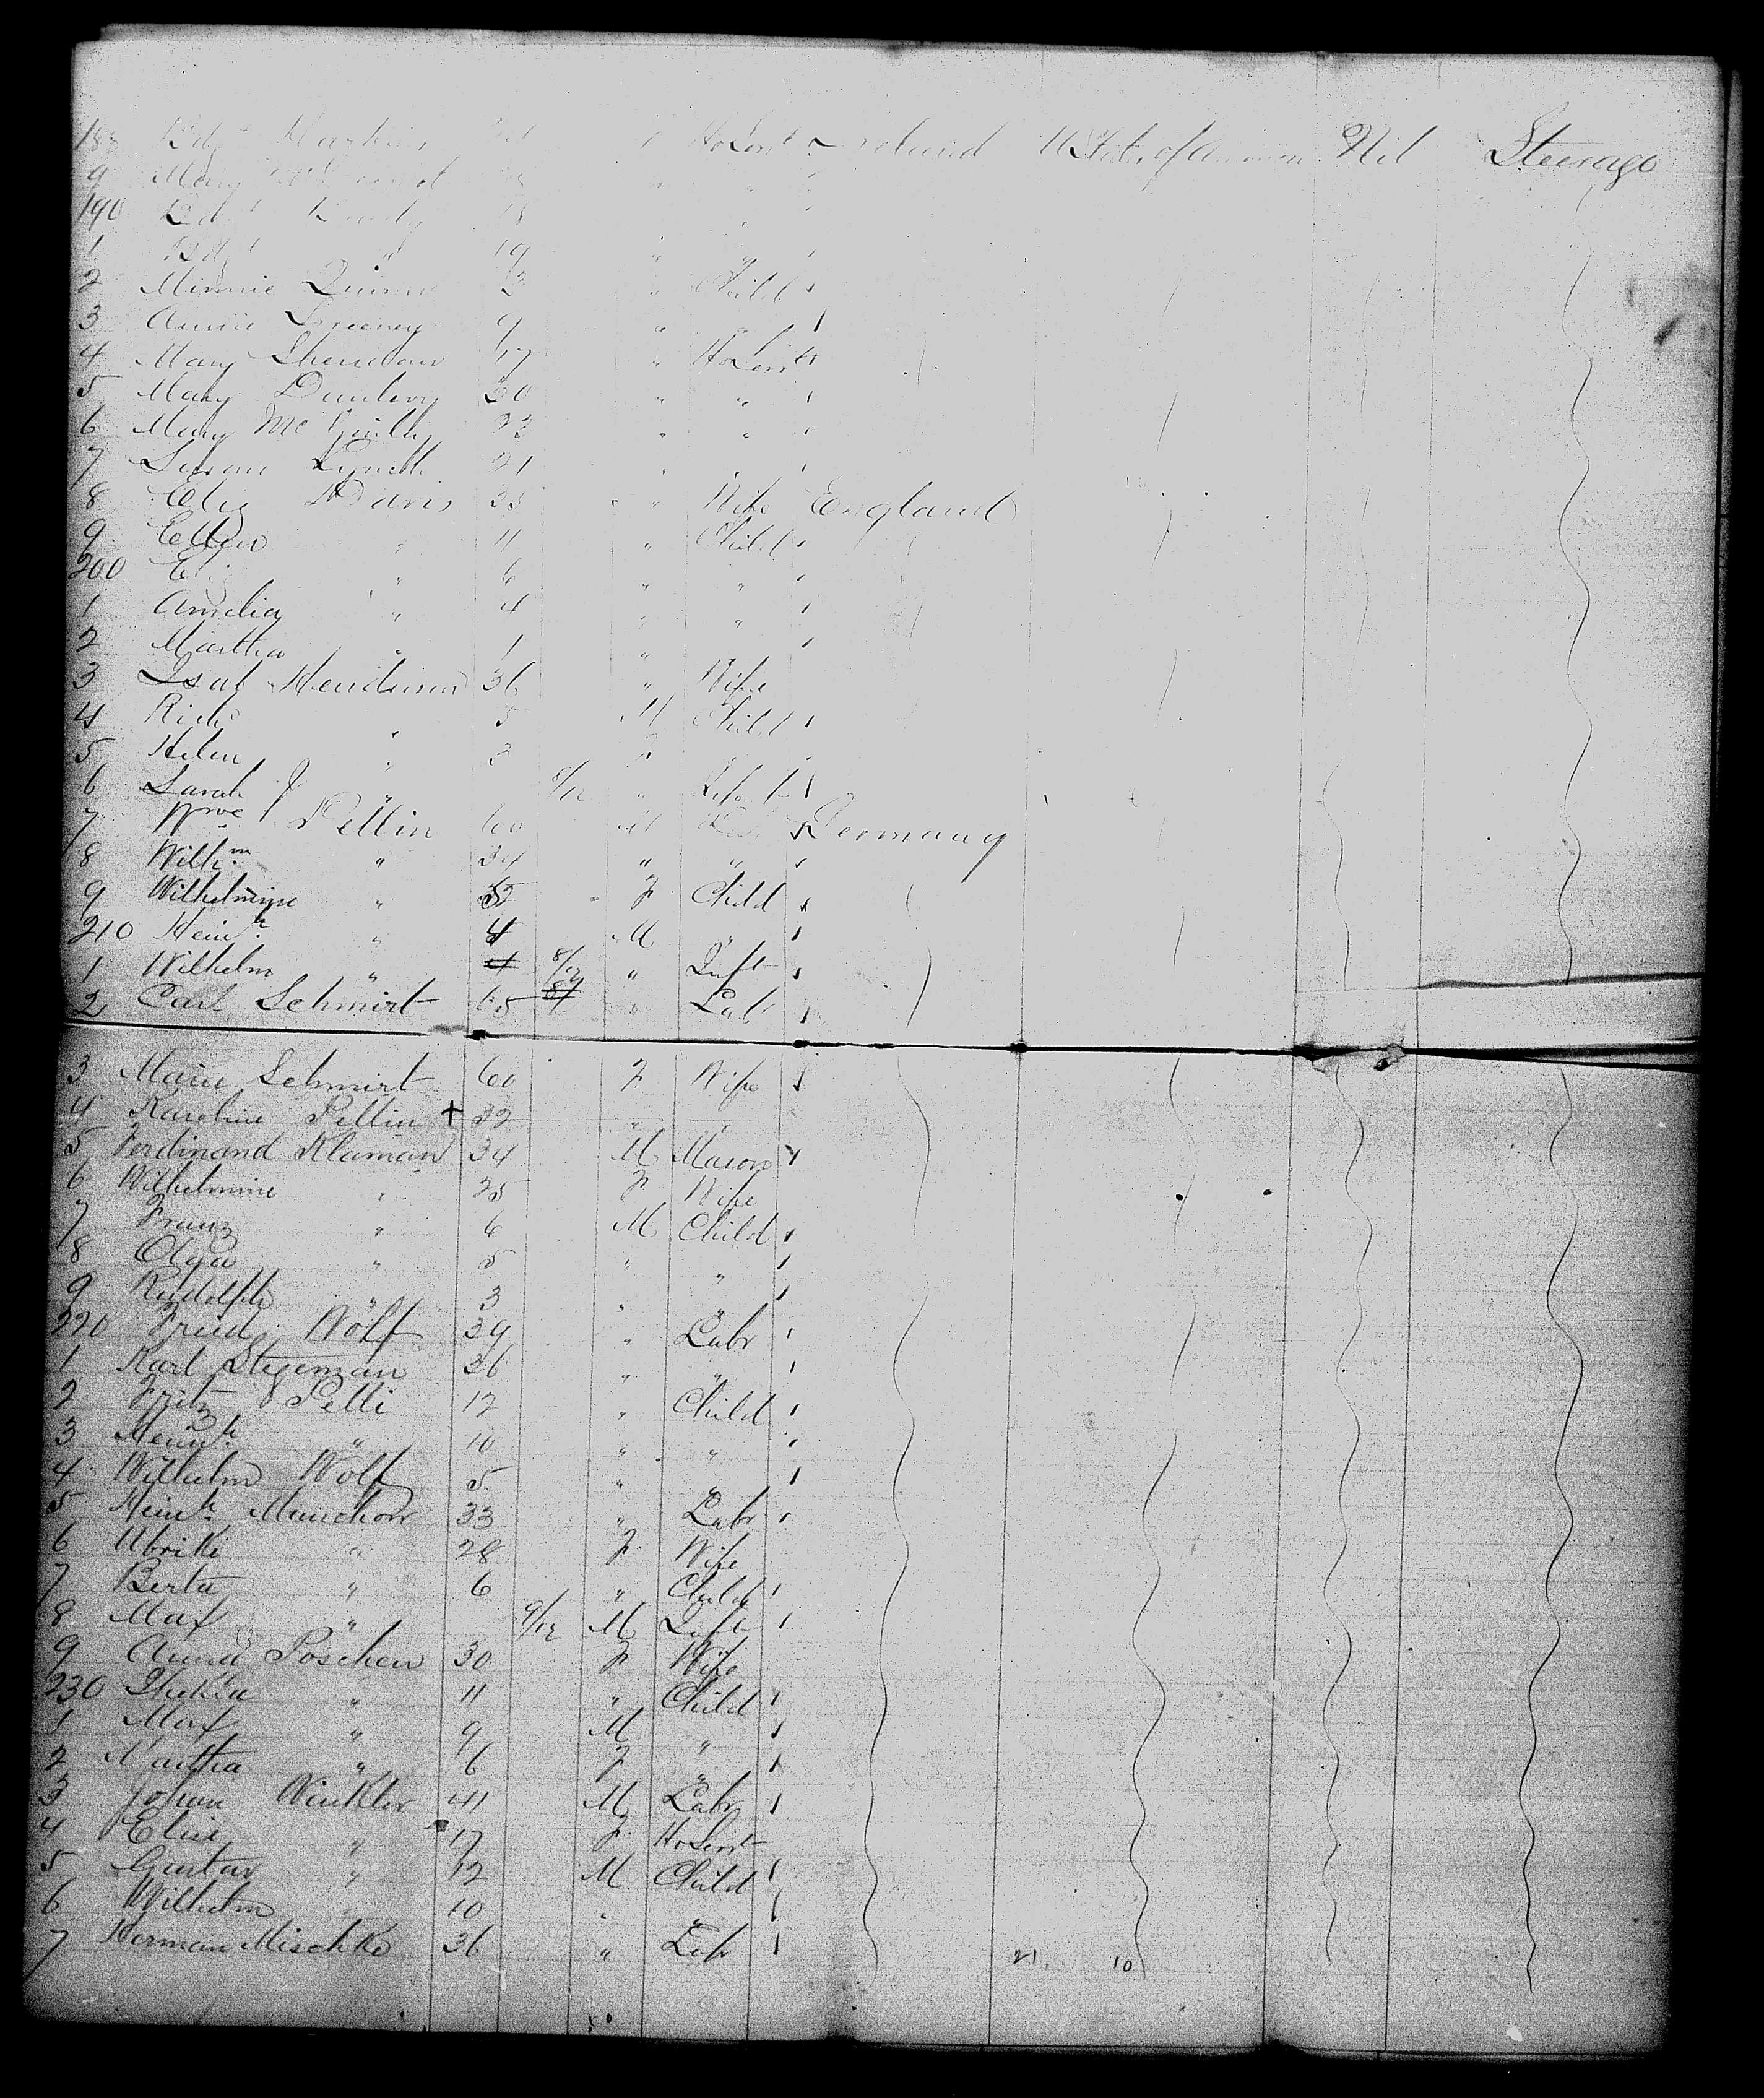 188 Ho Servt Ireland U States of America Nil Steerage
9 Mary
190
1 Bdgt " 19 " "
2 Minnie Quinn 3 " Child
3 Annie Sweeney 9 " "
4 Mary Sheridan 17 " Ho Servt
5 Mary Dunlevy 30 " "
6 Mary Mc Ginlly 23 " "
7 Susan Lynch 21 "
8 Eliz Davis 35 " Wife England
9 Ellen " 11 " Child
200 Eliz " 6 " "
1 Amelia " 4 " "
2 Martha " 1 "
3 Isab Henderson 36 " Wife
4 Richd " 5 M Child
5 Helen " 3 F "
6 Sarah J " 8/12 " Inft
7 Pellin 60 M Germany
8 Wilhm " 34 " "
9 Wilhelmine " F Child
210 Heinh " 4 M "
1 Wilhelm " 8/12 " Inft
2 Carl Schmirt 65 " Labr
3 Marie Schmirt 60 F Wife
4 Karoline Pellin + 32 " "
5 Ferdinand Klaman 34 M Mason
6 Wilhelmine " 25 F Wife
7 Franz " 6 M Child
8 Olga " 5 " "
9 Rudolph " 3 " "
220 Friedr Wolf 39 " Labr
1 Karl Stegeman 36 " "
2 Fritz Pelli 12 " Child
3 Heinrh " 10 " "
4 Wilhelm Wolf 5 " "
5 Heinh Manchow 33 " Labr
6 Ulrike " 28 F Wife
7 Berta " 6 " Child
8 Max " 9/12 M Inft
9 Anna Poschen 30 F Wife
230 Thekla " 11 " Child
1 Max " 9 M "
2 Martha " 6 F "
3 Johan Winkler 41 M Labr
4 Elise " 17 F Ho Servt
5 Gustav " 12 M Child
6 Wilhelm " 10 " "
7 Herman Mischke 36 " Labr
21. 10